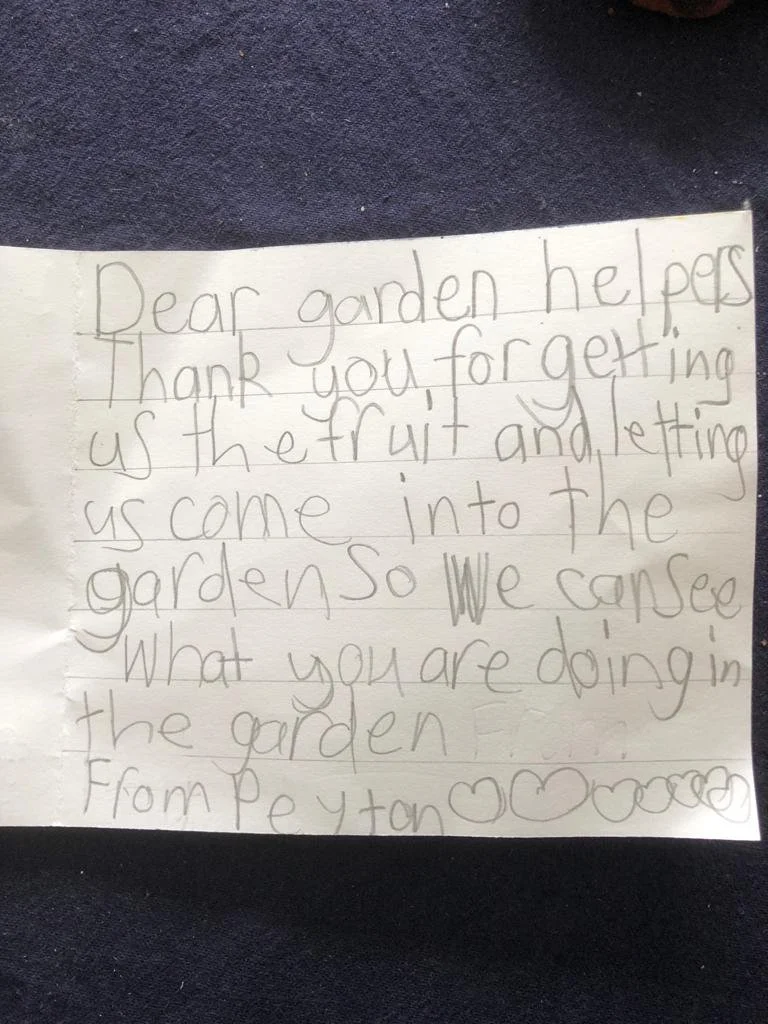 Dear garden helpers
Thank you for getting
us the fruit and letting
us come into the
garden So We can See
What you are doing in
the garden
From Peyton